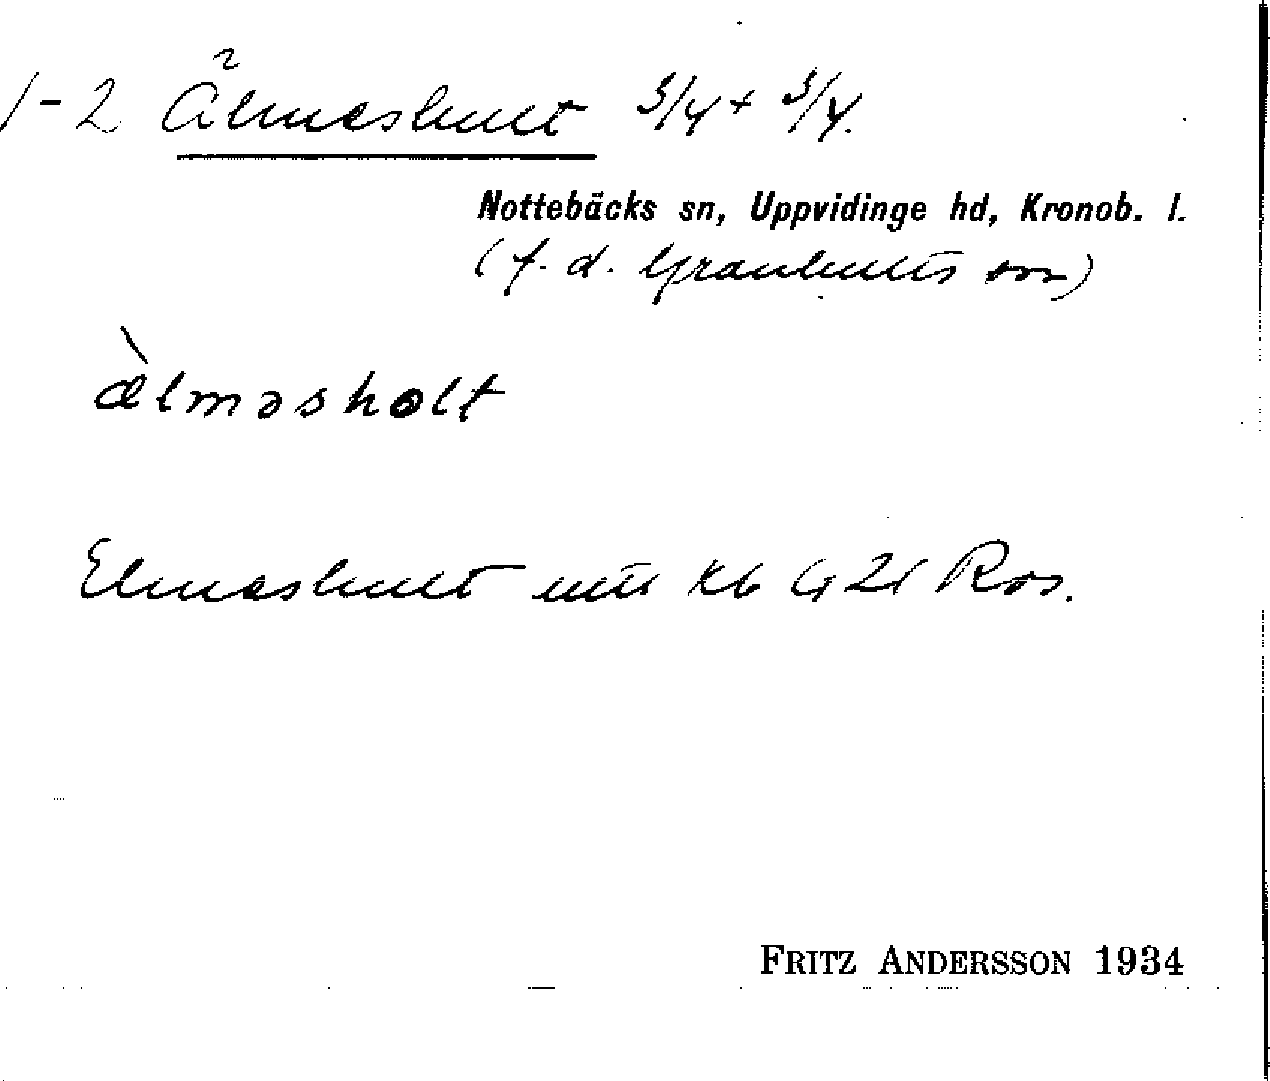 1-2 Älmeshult 3/4 + 3/4.
Nottebäcks sn, Uppvidinge hd, Kronob. l.
(f. d. Granhults sn)
ælməsholt
Elmeshult Kb G 21 Ros.
FRITZ ANDERSSON 1934